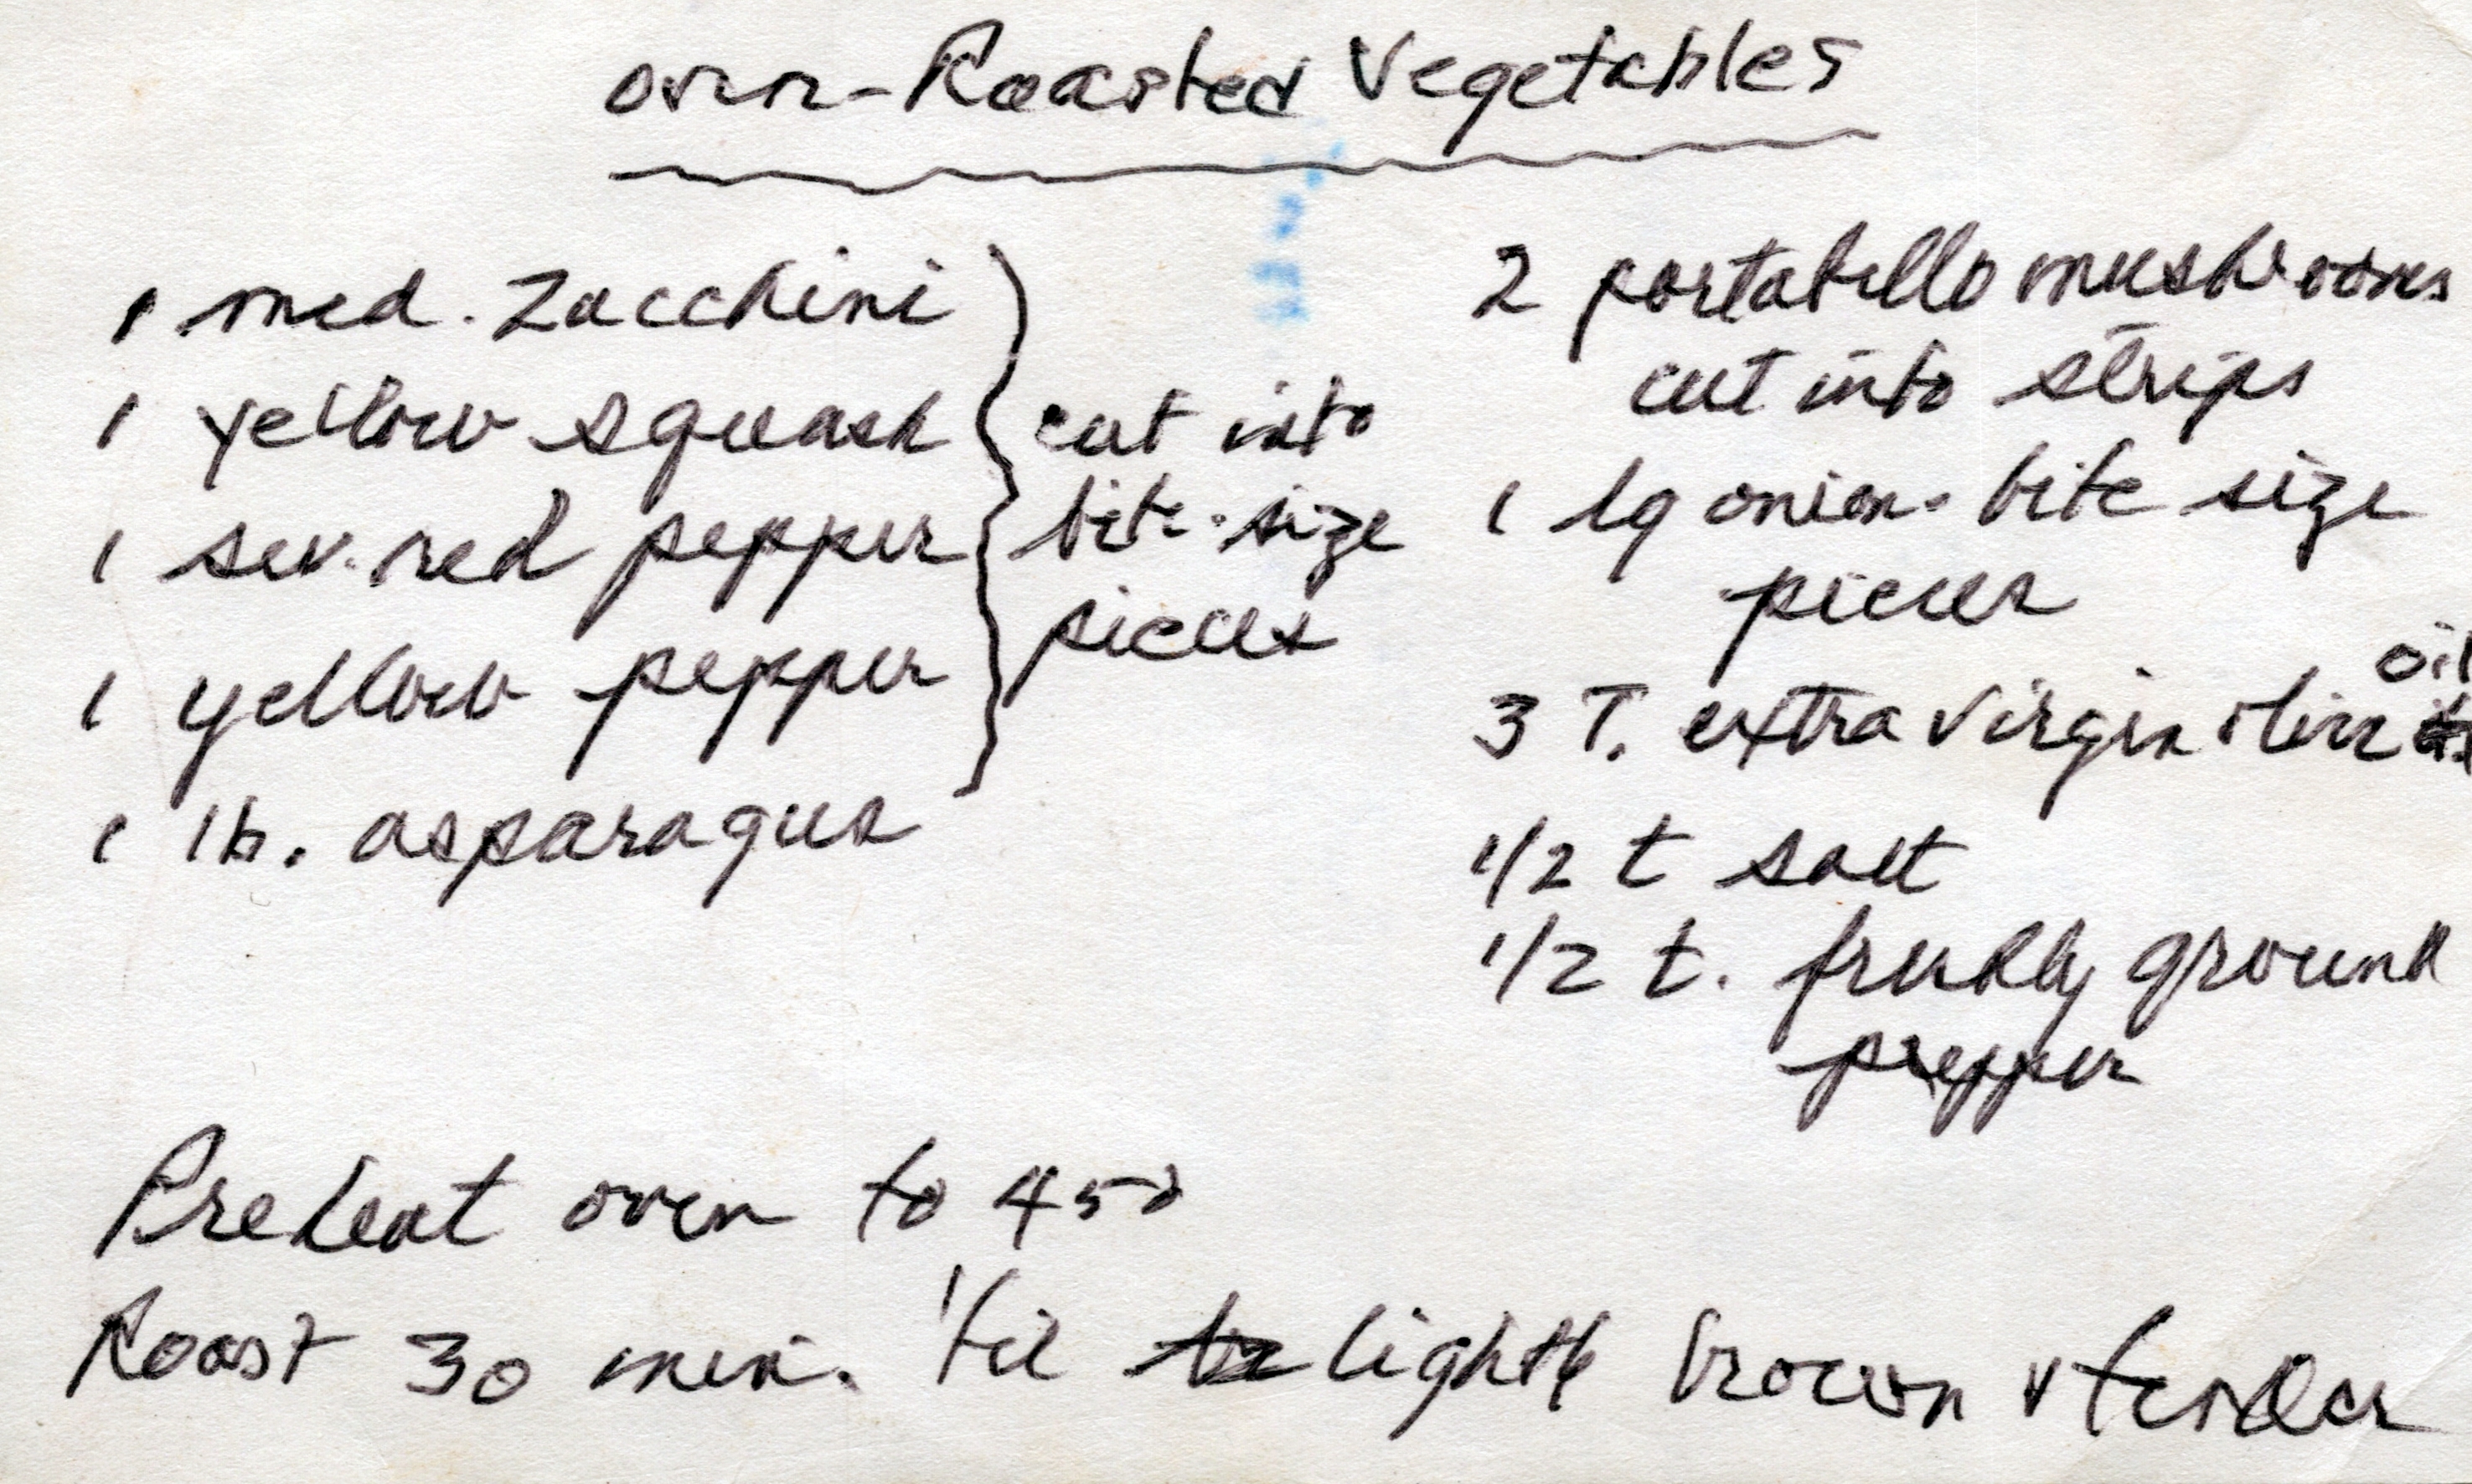 Oven-Roasted Vegetables
1 med. Zucchini
1 yellow squash
1 red pepper
1 yellow pepper
1 lb. asparagus
cut into
bite-size
pieces
2 portabello mushrooms
cut into strips
1 lg onion - bite size
pieces
3 T. extra virgin olive oil
1/2 t salt
1/2 t. freshly ground
pepper
Preheat oven to 450
Roast 30 min. 'til lightly brown & tender